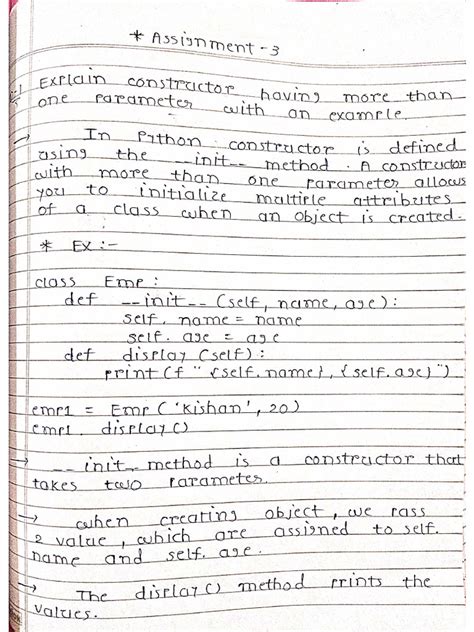 * Assignment - 3
Explain constructor having more than
one parameter with an example.
→ In Python constructor is defined
using the __init__ method. A constructor
with more than one parameter allows
you to initialize multiple attributes
of a class when an object is created.
* EX :-
class Emp :
def __init__ (self, name, age):
self. name = name
self. age = age
def display (self) :
print (f " {self.name}, {self.age}")
emp1 = Emp ('Kishan', 20)
emp1. display()
→ __init__ method is a constructor that
takes two parameter.
→ when creating object, we pass
2 value, which are assigned to self.
name and self. age.
→ The display() method prints the
values.